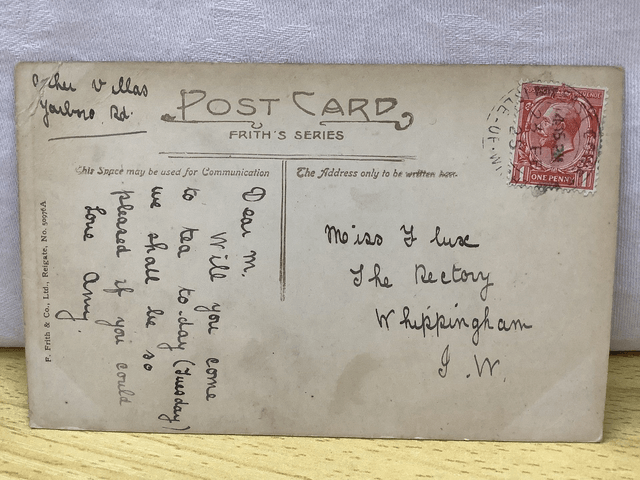 Villas
Yarboro Rd.
POST CARD
FRITH'S SERIES
This Space may be used for Communication
The Address only to be written here.
Dear M.
Will you come
to tea to-day (Tuesday)
we shall be so
pleased if you could
Love Amy.
Miss F lux
The Rectory
Whippingham
I. W.
F. Frith & Co., Ltd., Reigate, No. 
REVENUE
ONE PENNY